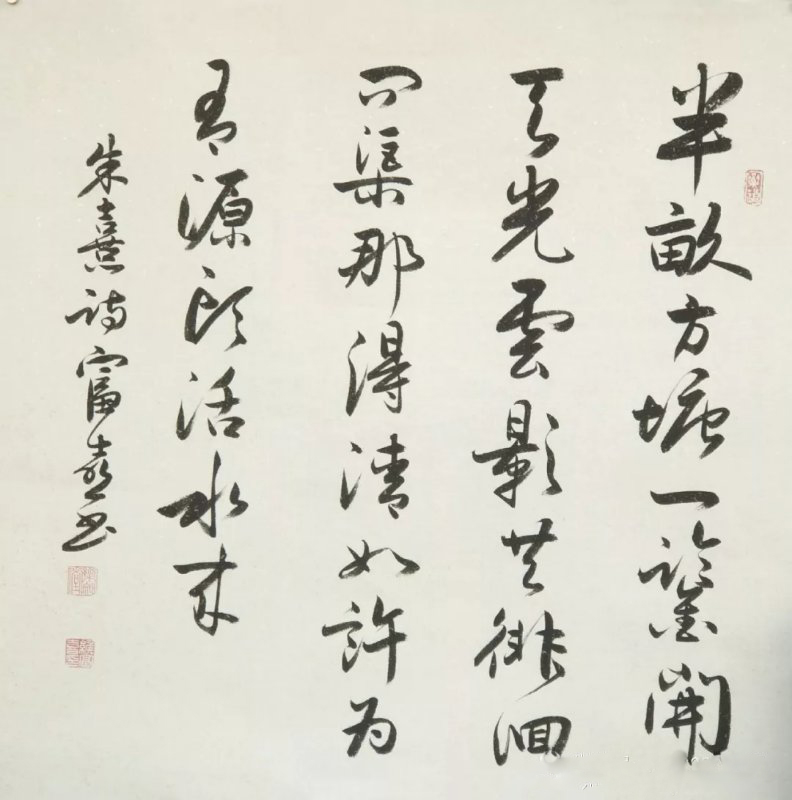 半畝方塘一鑑開
天光雲影共徘徊
問渠那得清如許為
有源頭活水來
朱熹詩富喜書